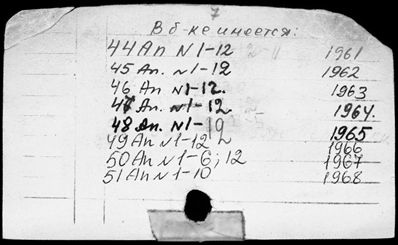 7
В б-ке имеется:
44 Ап N 1-12 1961
45 Ап. N 1-12 1962
46 Ап N 1-12. 1963
47 Ап. N 1-12. 1964.
48 Ап. N 1-10 1965
49 Ап N 1-12 1966
50 Ап N 1-6; 12 1967
51 Ап N 1-10 1968